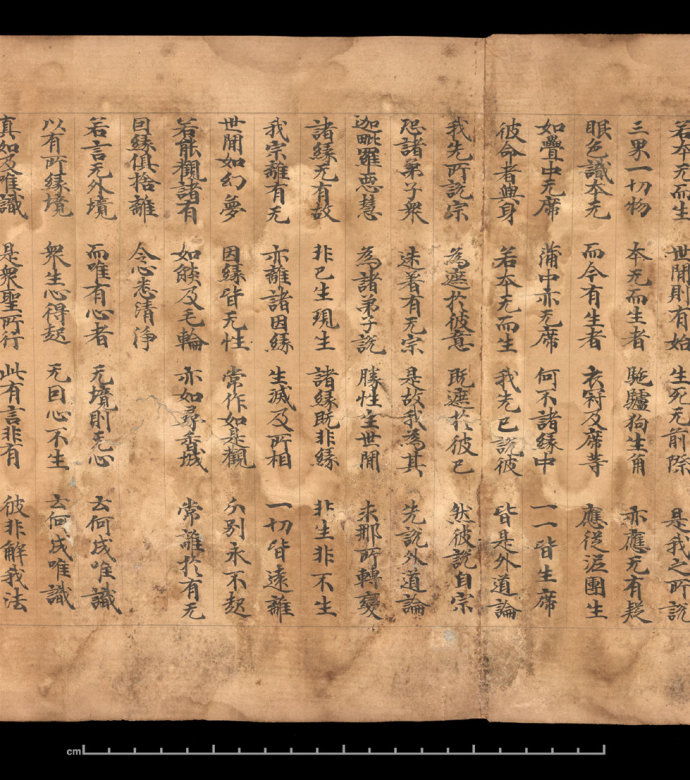 若本无而生 世間則有始 生死无前際 是我之所說
三界一切物 本无而生者 駞驢狗生角 亦應无有疑
眼色識本无 而今有生者 衣冠及席等 應從泥團生
如疊中无席 蒲中亦无席 何不諸緣中 一一皆生席
彼命者與身 若本无而生 我先已說彼 皆是外道論
我先所說宗 為遮於彼意 既遮於彼已 然彼說自宗
恐諸弟子衆 迷著有无宗 是故我為其 先說外道論
迦毗羅惡慧 為諸弟子說 勝性生世間 求那所轉變
諸緣无有故 非已生現生 諸緣既非緣 非生非不生
我宗離有无 亦離諸因緣 生滅及所相 一切皆遠離
世間如幻夢 因緣皆无性 常作如是觀 分別永不起
若能觀諸有 如焰及毛輪 亦如尋香城 常離於有无
因緣俱捨離 令心悉清淨
若言无外境 而唯有心者 无境則无心 云何成唯識
以有所緣境 衆生心得起 无因心不生 云何成唯識
真如及唯識 是衆聖所行 此有言非有 彼非解我法
cm